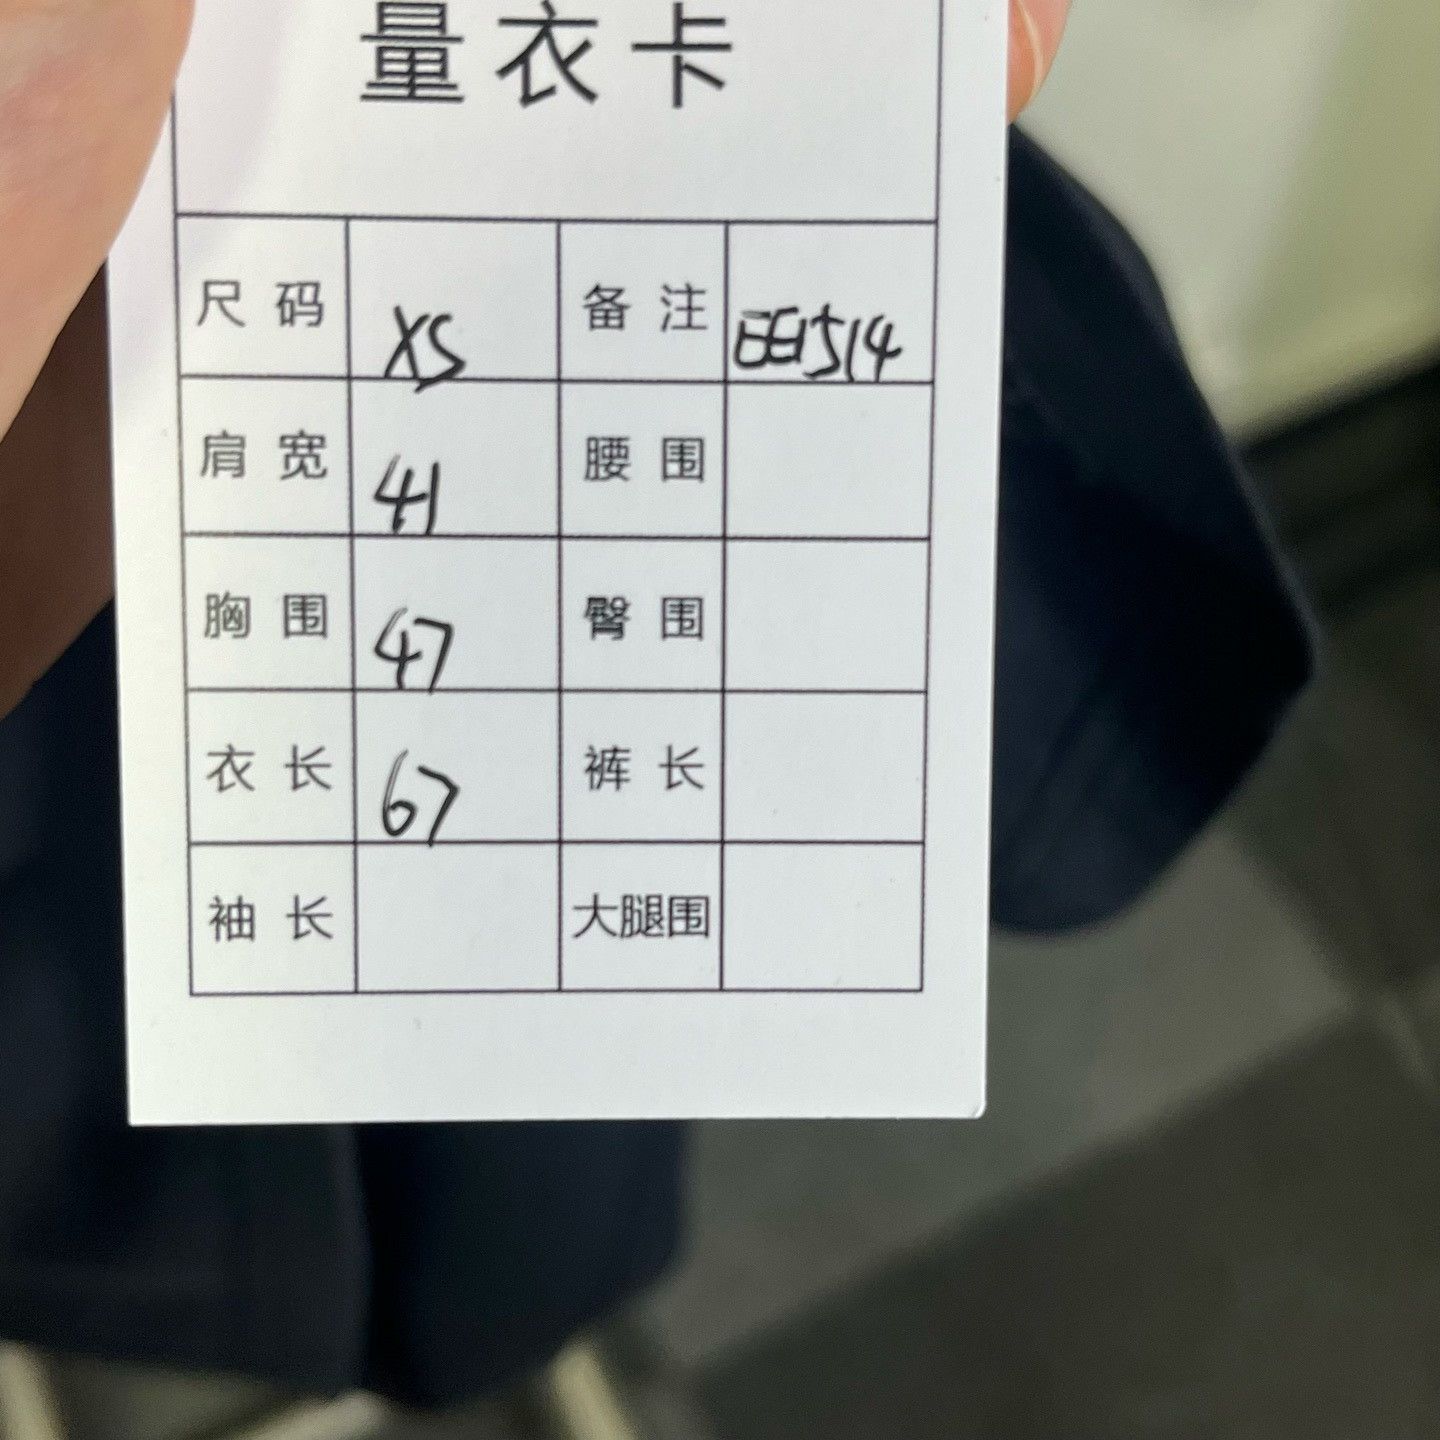 量衣卡
尺码 XS 备注
肩宽 41 腰围
胸围 47 臀围
衣长 67 裤长
袖长 大腿围